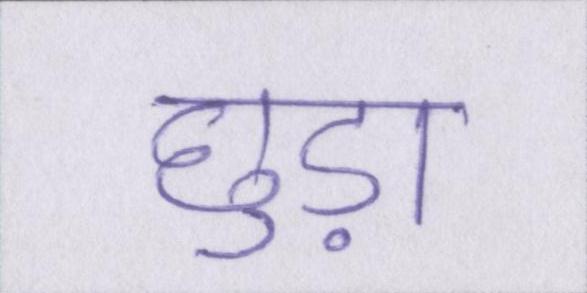 छुड़ा